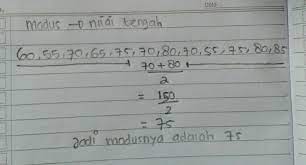 modus → nilai tengah
60,55,70,65,75,70,80,70,55,75,80,85
70+80
2
= 150
2
= 75
Jadi modusnya adalah 75